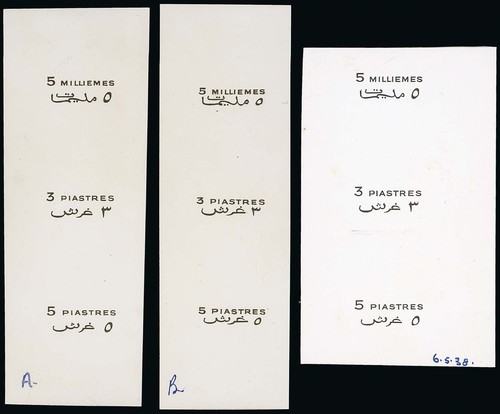 5 MILLIEMES
٥ مليمات
3 PIASTRES
٣ غرش
5 PIASTRES
٥ غرش
A-
5 MILLIEMES
٥ مليمات
3 PIASTRES
٣ غرش
5 PIASTRES
٥ غرش
B-
5 MILLIEMES
٥ مليمات
3 PIASTRES
٣ غرش
5 PIASTRES
٥ غرش
6.5.38.